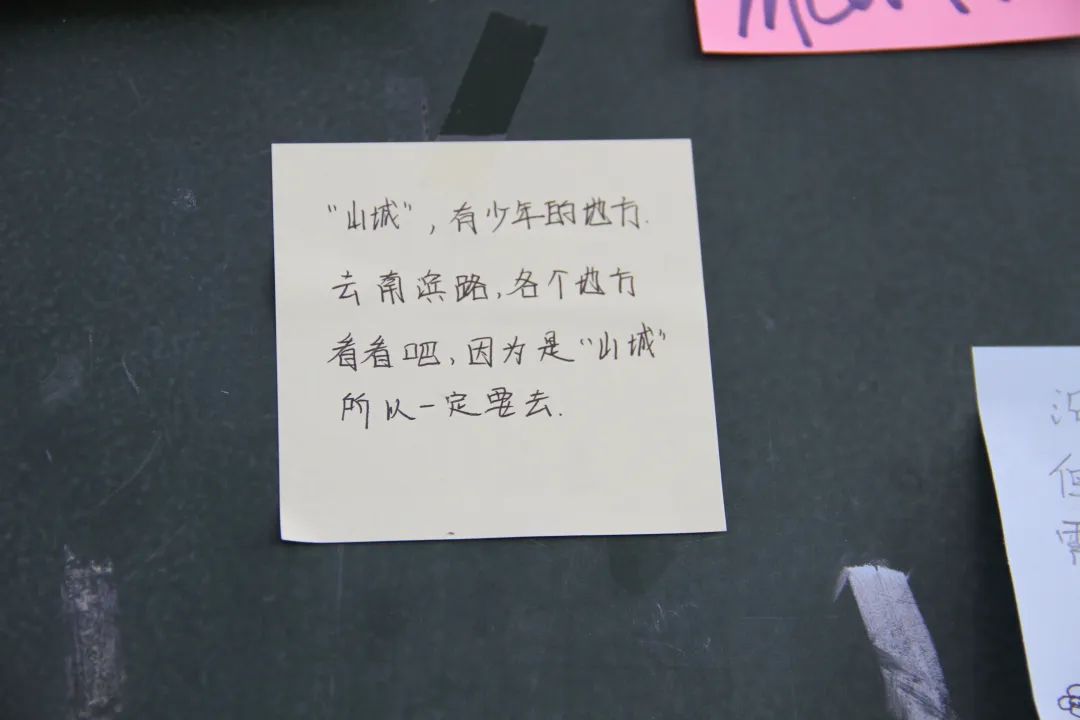 “山城”，有少年的地方.
去南滨路,各个地方
看看吧,因为是“山城”
所以一定要去.